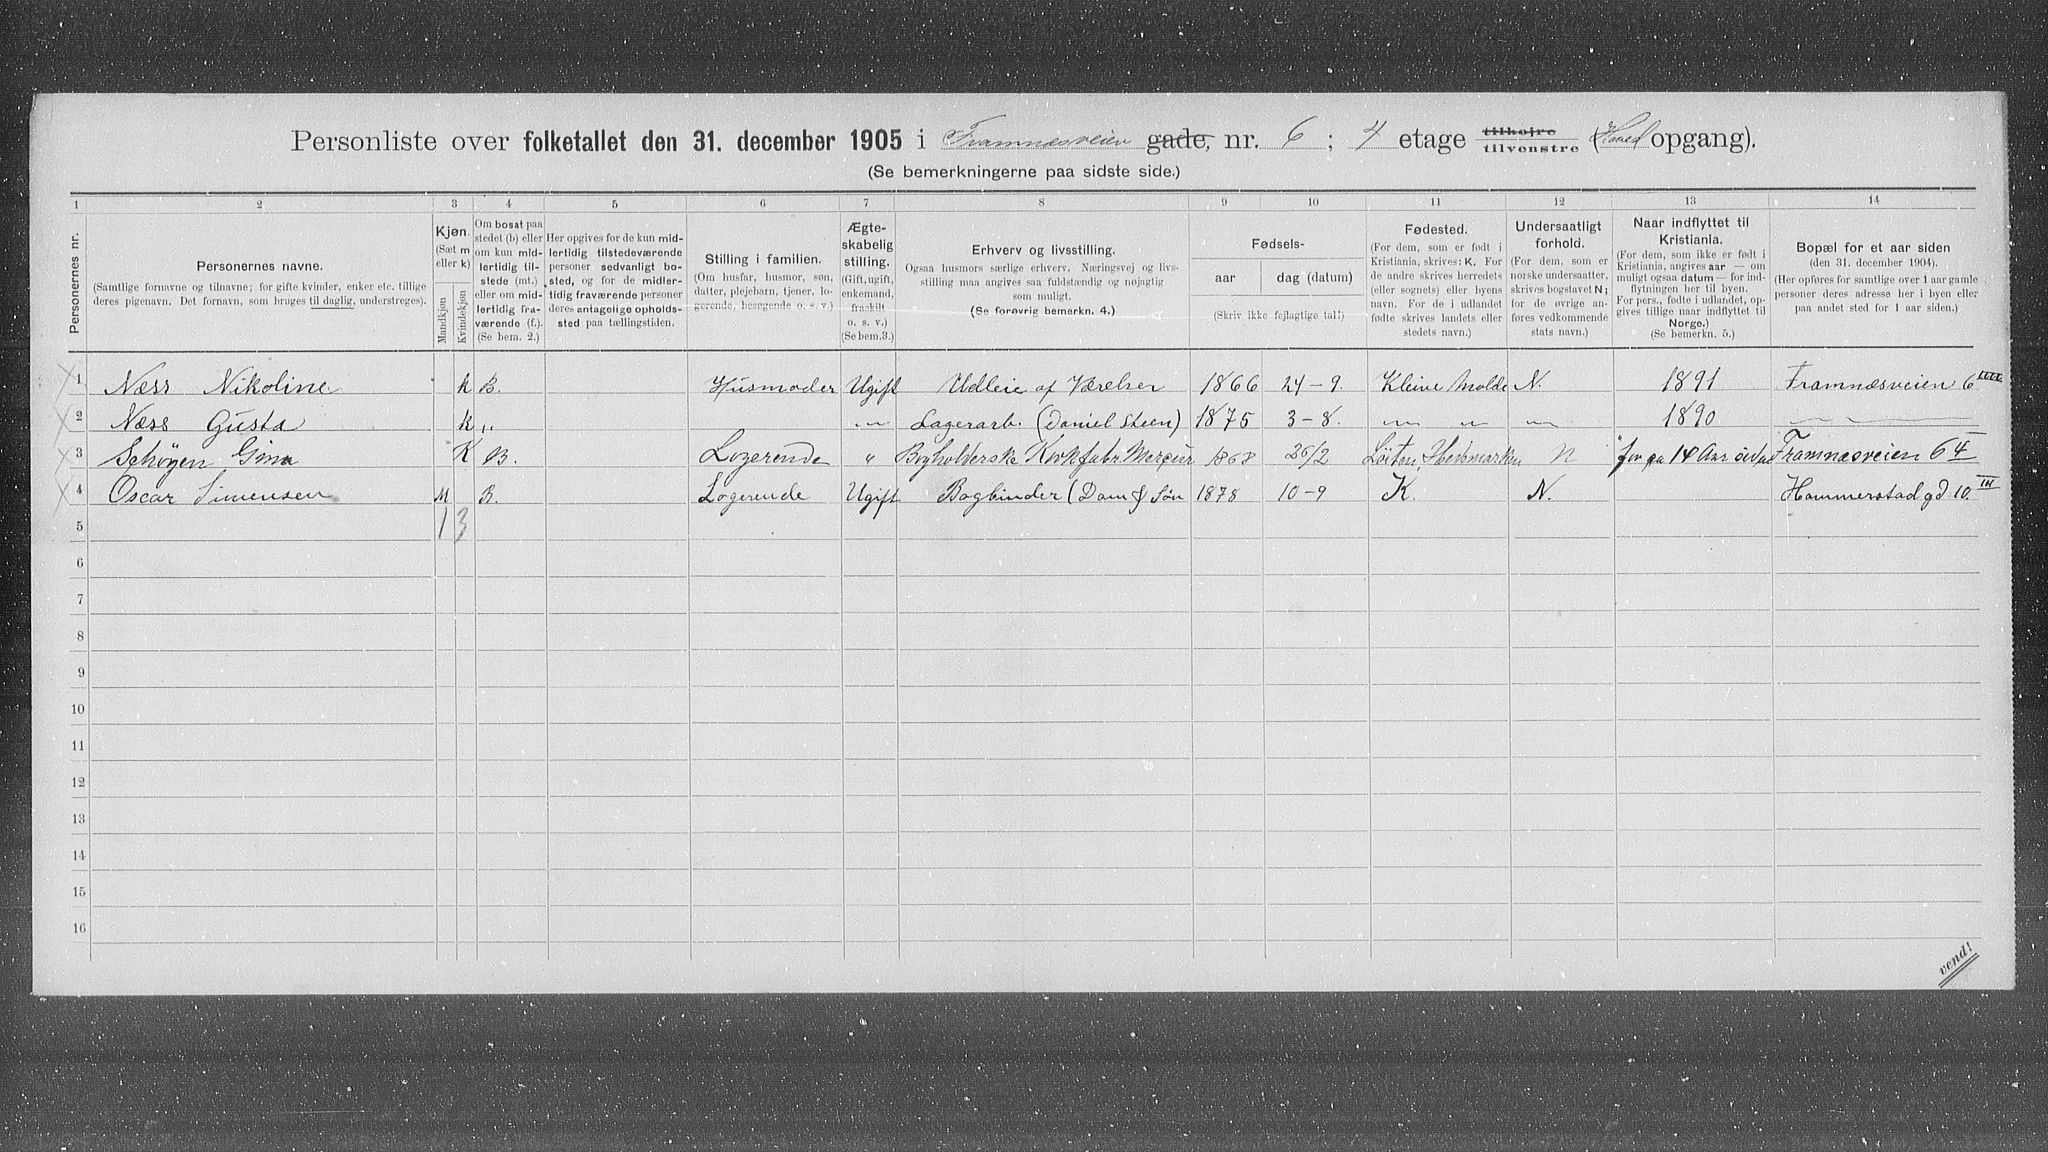 Personliste over folketallet den 31. december 1905 i Framnæsveien gade, nr. 6 ; 4 etage tilhøjre tilvenstre (Hoved opgang).
(Se bemerkningerne paa sidste side.)
1 2 3 4 5 6 7 8 9 10 11 12 13 14
Personernes nr.
Personernes navne.
(Samtlige fornavne og tilnavne; for gifte kvinder, enker etc. tillige
deres pigenavn. Det fornavn, som bruges til daglig, understreges).
Kjøn.
(Sæt m
eller k)
Mandkjøn
Kvindekjøn
Om bosat paa
stedet (b) eller
om kun mid-
lertidig til-
stede (mt.)
eller om mid-
lertidig fra-
værende (f.).
(Se bem. 2.)
Her opgives for de kun mid-
lertidig tilstedeværende
personer sedvanlig bo-
sted, og for de midler-
tidig fraværende personer
deres antagelige opholds-
sted paa tællingstiden.
Stilling i familien.
(Om husfar, husmor, søn,
datter, plejebarn, tjener, lo-
gerende, besøgende o. s. v.)
Ægte-
skabelig
stilling.
(Gift, ugift,
enkemand,
fraskilt
o. s. v.)
(Se bem. 3.)
Erhverv og livsstilling.
Ogsaa husmors særlige erhverv. Næringsvej og livs-
stilling maa angives saa fuldstændig og nøjagtig
som muligt.
(Se forøvrig bemerkn. 4.)
Fødsels-
aar
dag (datum)
(Skriv ikke fejlagtige tal!)
Fødested.
(For dem, som er født i
Kristiania, skrives: K. For
de andre skrives herredets
(eller sognets) eller byens
navn. For de i udlandet
fødte skrives landets eller
stedets navn.)
Undersaatligt
forhold.
(For dem, som er
norske undersaatter,
skrives bogstavet N;
for de øvrige an-
føres vedkommende
stats navn.)
Naar indflyttet til
Kristiania.
(For dem, som ikke er født i
Kristiania, angives aar — om
muligt ogsaa datum — for ind-
flytningen her til byen.
For pers., fødte i udlandet, op-
gives tillige naar indflyttet til
Norge.)
(Se bemerkn. 5.)
Bopæl for et aar siden
(den 31. december 1904).
(Her opføres for samtlige over 1 aar gamle
personer deres adresse her i byen eller
paa andet sted for 1 aar siden.)
1 Næss Nikoline k B. Husmoder Ugift Udleie af Værelser 1866 24-9. Kleive Molde N. 1891 Framnæsveien 6
2 Næss Gusta k " — " — Lagerarb. (Daniel Steen) 1875 3-8. — " — " — " — 1890 — " —
3 Schøyen Gina K B. Logerende " Bogholderske Korkfabr. Mercur 1868 26/2 Løiten, Hedemarken N for ca 14 Aar siden Framnæsveien 6 4
4 Oscar Simensen M B. Logerende Ugift Bogbinder (Dam & Søn 1878 10-9 K. N. Hammerstad gd 10. III
5 1 3
6
7
8
9
10
11
12
13
14
15
16
vend!